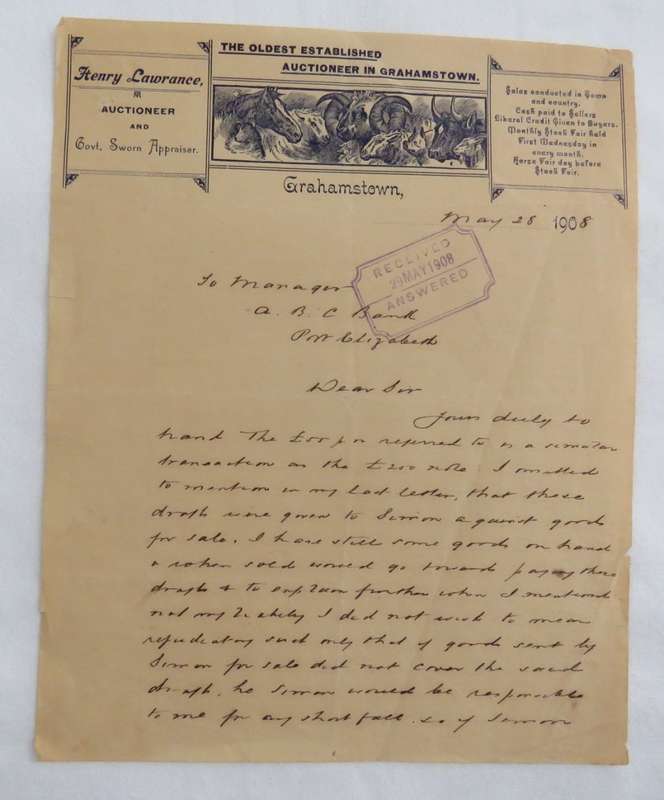 Henry Lawrance,
AUCTIONEER
AND
Govt. Sworn Appraiser.
THE OLDEST ESTABLISHED
AUCTIONEER IN GRAHAMSTOWN.
Sales conducted in Town
and country.
Cash paid to Sellers
Liberal Credit Given to Buyers.
Monthly Stock Fair held
First Wednesday in
every month.
Horse Fair day before
Stock Fair.
Grahamstown,
May 28 1908
RECEIVED
29 MAY 1908
ANSWERED
To Manager
A. B. C Bank
Port Elizabeth
Dear Sir
Yours duly to
hand The referred to is a similar
transaction as the £200 note. I omitted
to mention in my last letter, that these
drafts were given to Simon against goods
for sale. I have still some goods on hand
& when sold would go towards paying these
drafts & to explain further when I mentioned
not my liability I did not wish to mean
repudiating such only that if goods sent by
Simon for sale did not cover the said
drafts, he Simon would be responsible
to me for any short fall. so if Simon